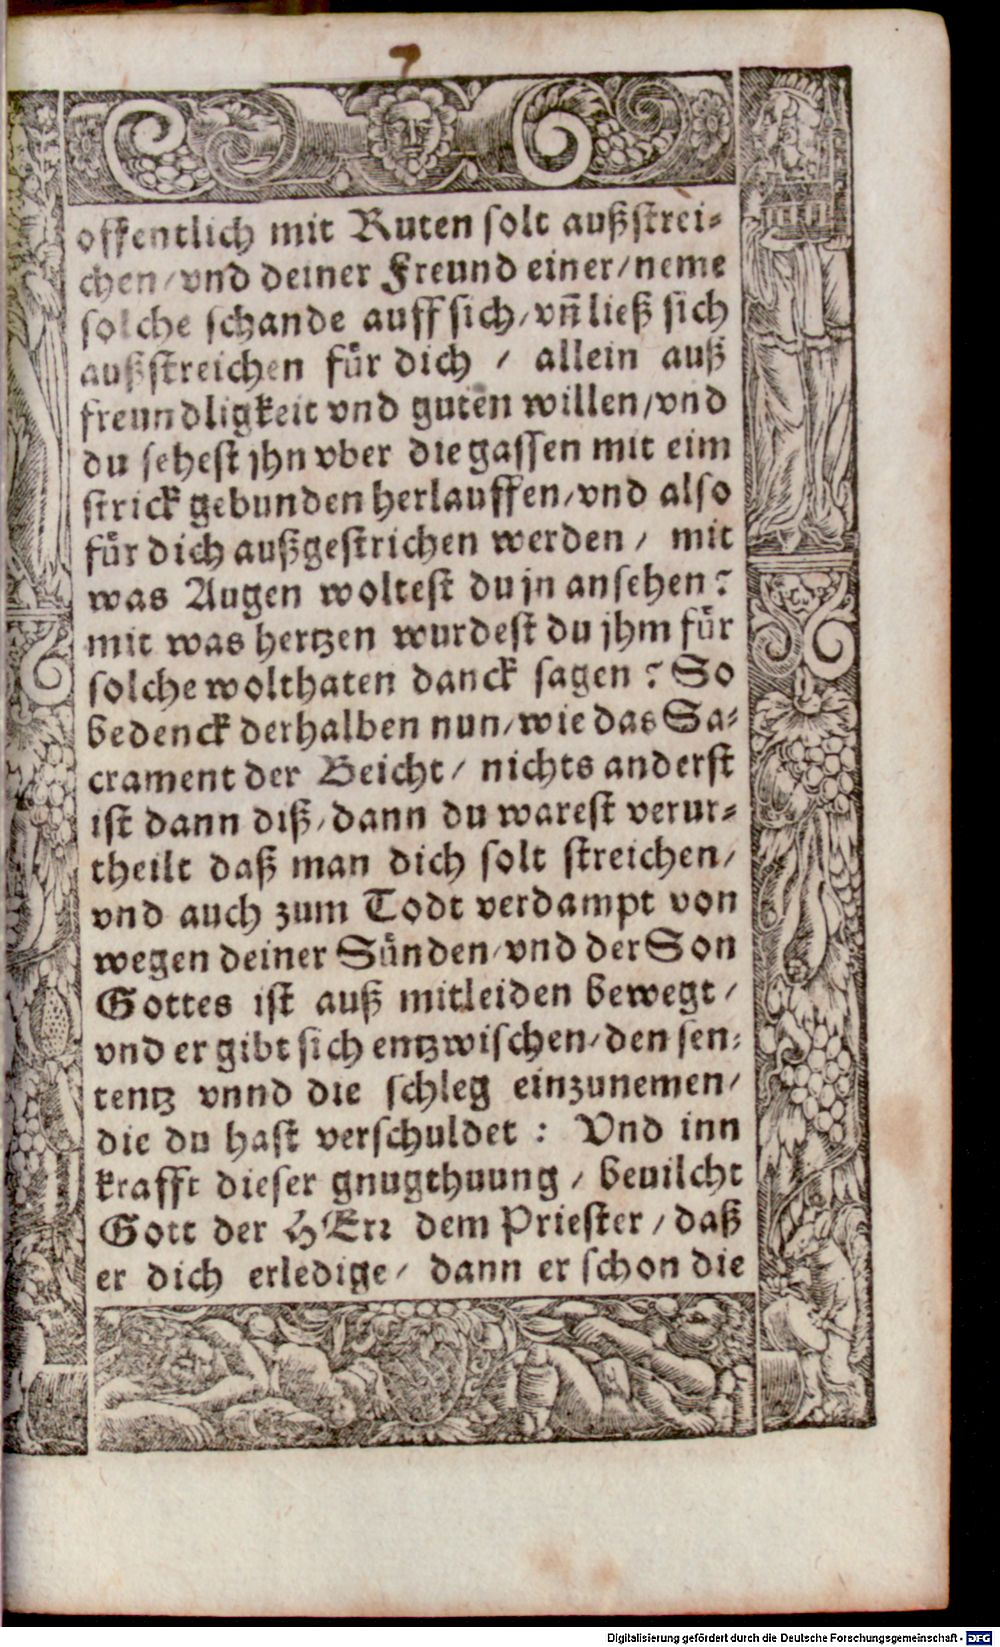 7
offentlich mit Ruten ſolt außſtrei⸗
chen/ vnd deiner Freund einer/ neme
ſolche ſchande auff ſich/ vn̄ ließ ſich
außſtreichen fuͤr dich / allein auß
freundligkeit vnd guten willen/ vnd
du ſeheſt jhn vber die gaſſen mit eim
ſtrick gebunden herlauffen/ vnd alſo
fuͤr dich außgeſtrichen werden / mit
was Augen wolteſt du jn anſehen?
mit was hertzen wurdeſt du jhm fuͤr
ſolche wolthaten danck ſagen? So
bedenck derhalben nun/ wie das Sa⸗
crament der Beicht/ nichts anderſt
iſt dann diß/ dann du wareſt verur⸗
theilt daß man dich ſolt ſtreichen/
vnd auch zum Todt verdampt von
wegen deiner Suͤnden/ vnd der Son
Gottes iſt auß mitleiden bewegt/
vnd er gibt ſich entzwiſchen/ den ſen⸗
tentz vnnd die ſchleg einzunemen/
die du haſt verſchuldet : Vnd inn
krafft dieſer gnugthuung / beuilcht
Gott der HErꝛ dem Prieſter/ daß
er dich erledige/ dann er ſchon die
Digitalisierung gefördert durch die Deutsche Forschungsgemeinschaft - DFG